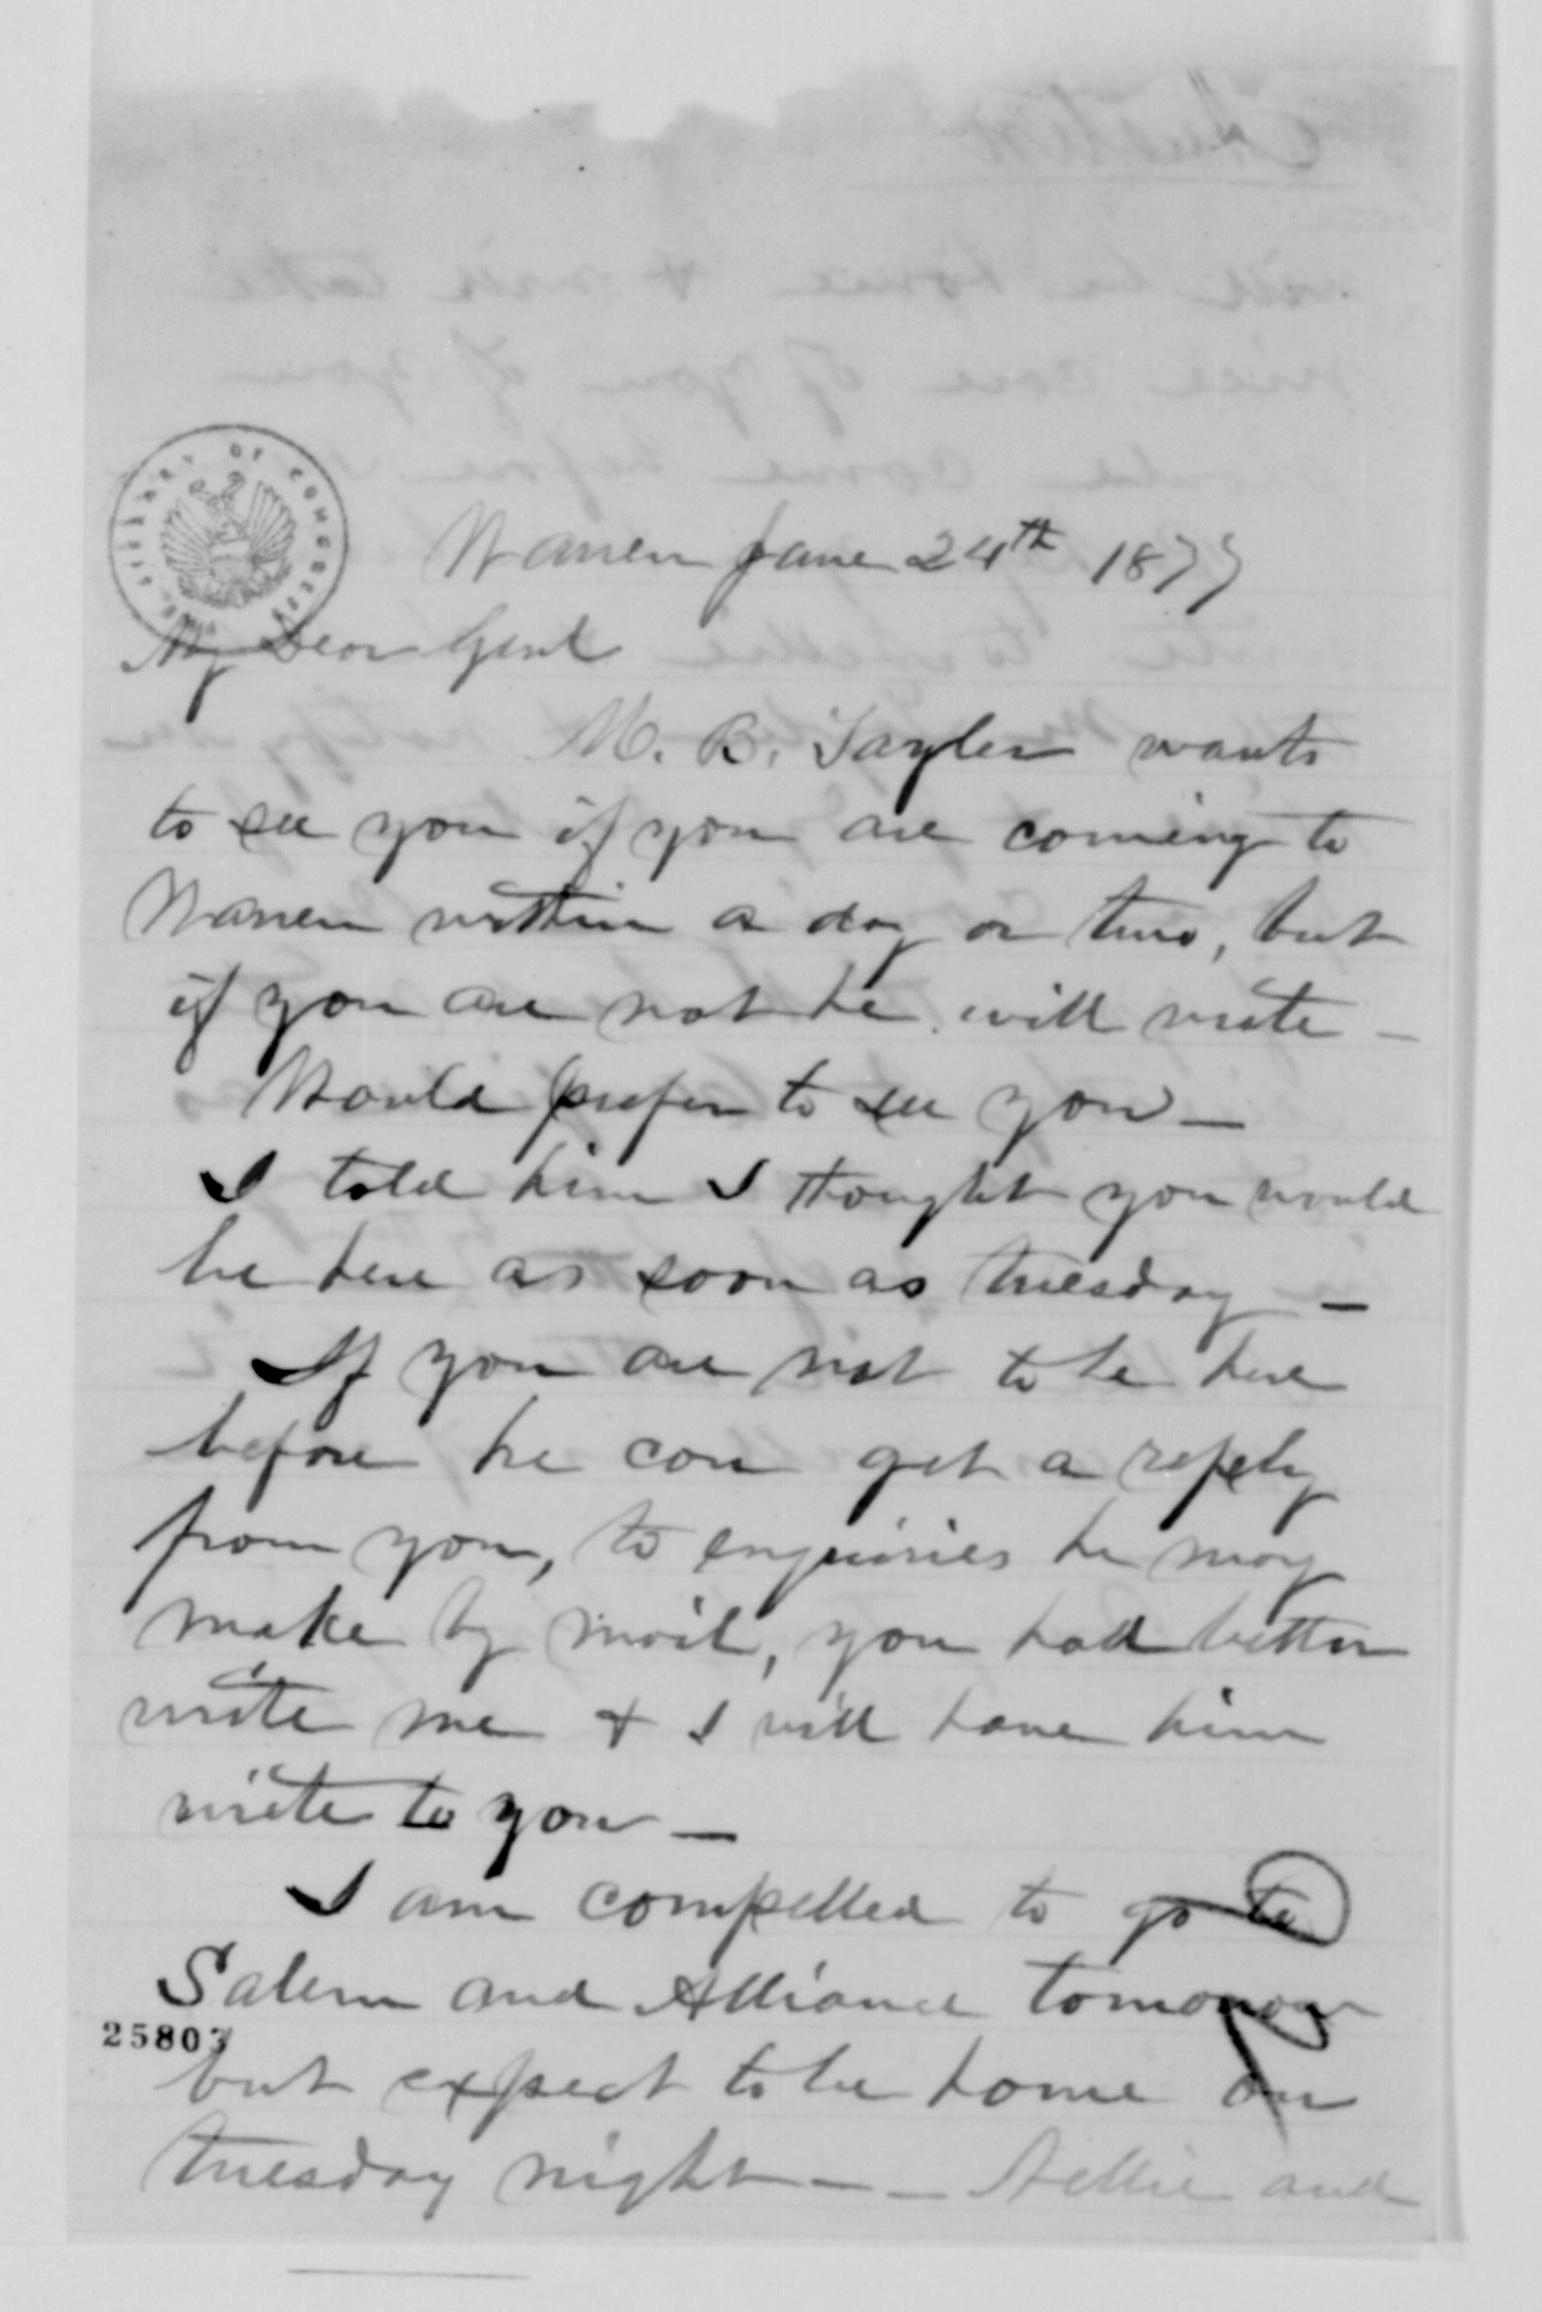 LIBRARY OF CONGRESS
Warren June 24th 1877
My Dear Genl
M. B. Tayler wants
to see you if you are coming to
Warren within a day or two, but
if you are not he will write –
Would prefer to see you –
I told him I thought you would
be here as soon as tuesday –
If you are not to be here
before he can get a reply
from you, to enquiries he may
make by mail, you had better
write me & I will have him
write to you –
I am compelled to go to
Salem and Alliance tomorrow
25803
but expect to be home on
tuesday night – – Nellie and